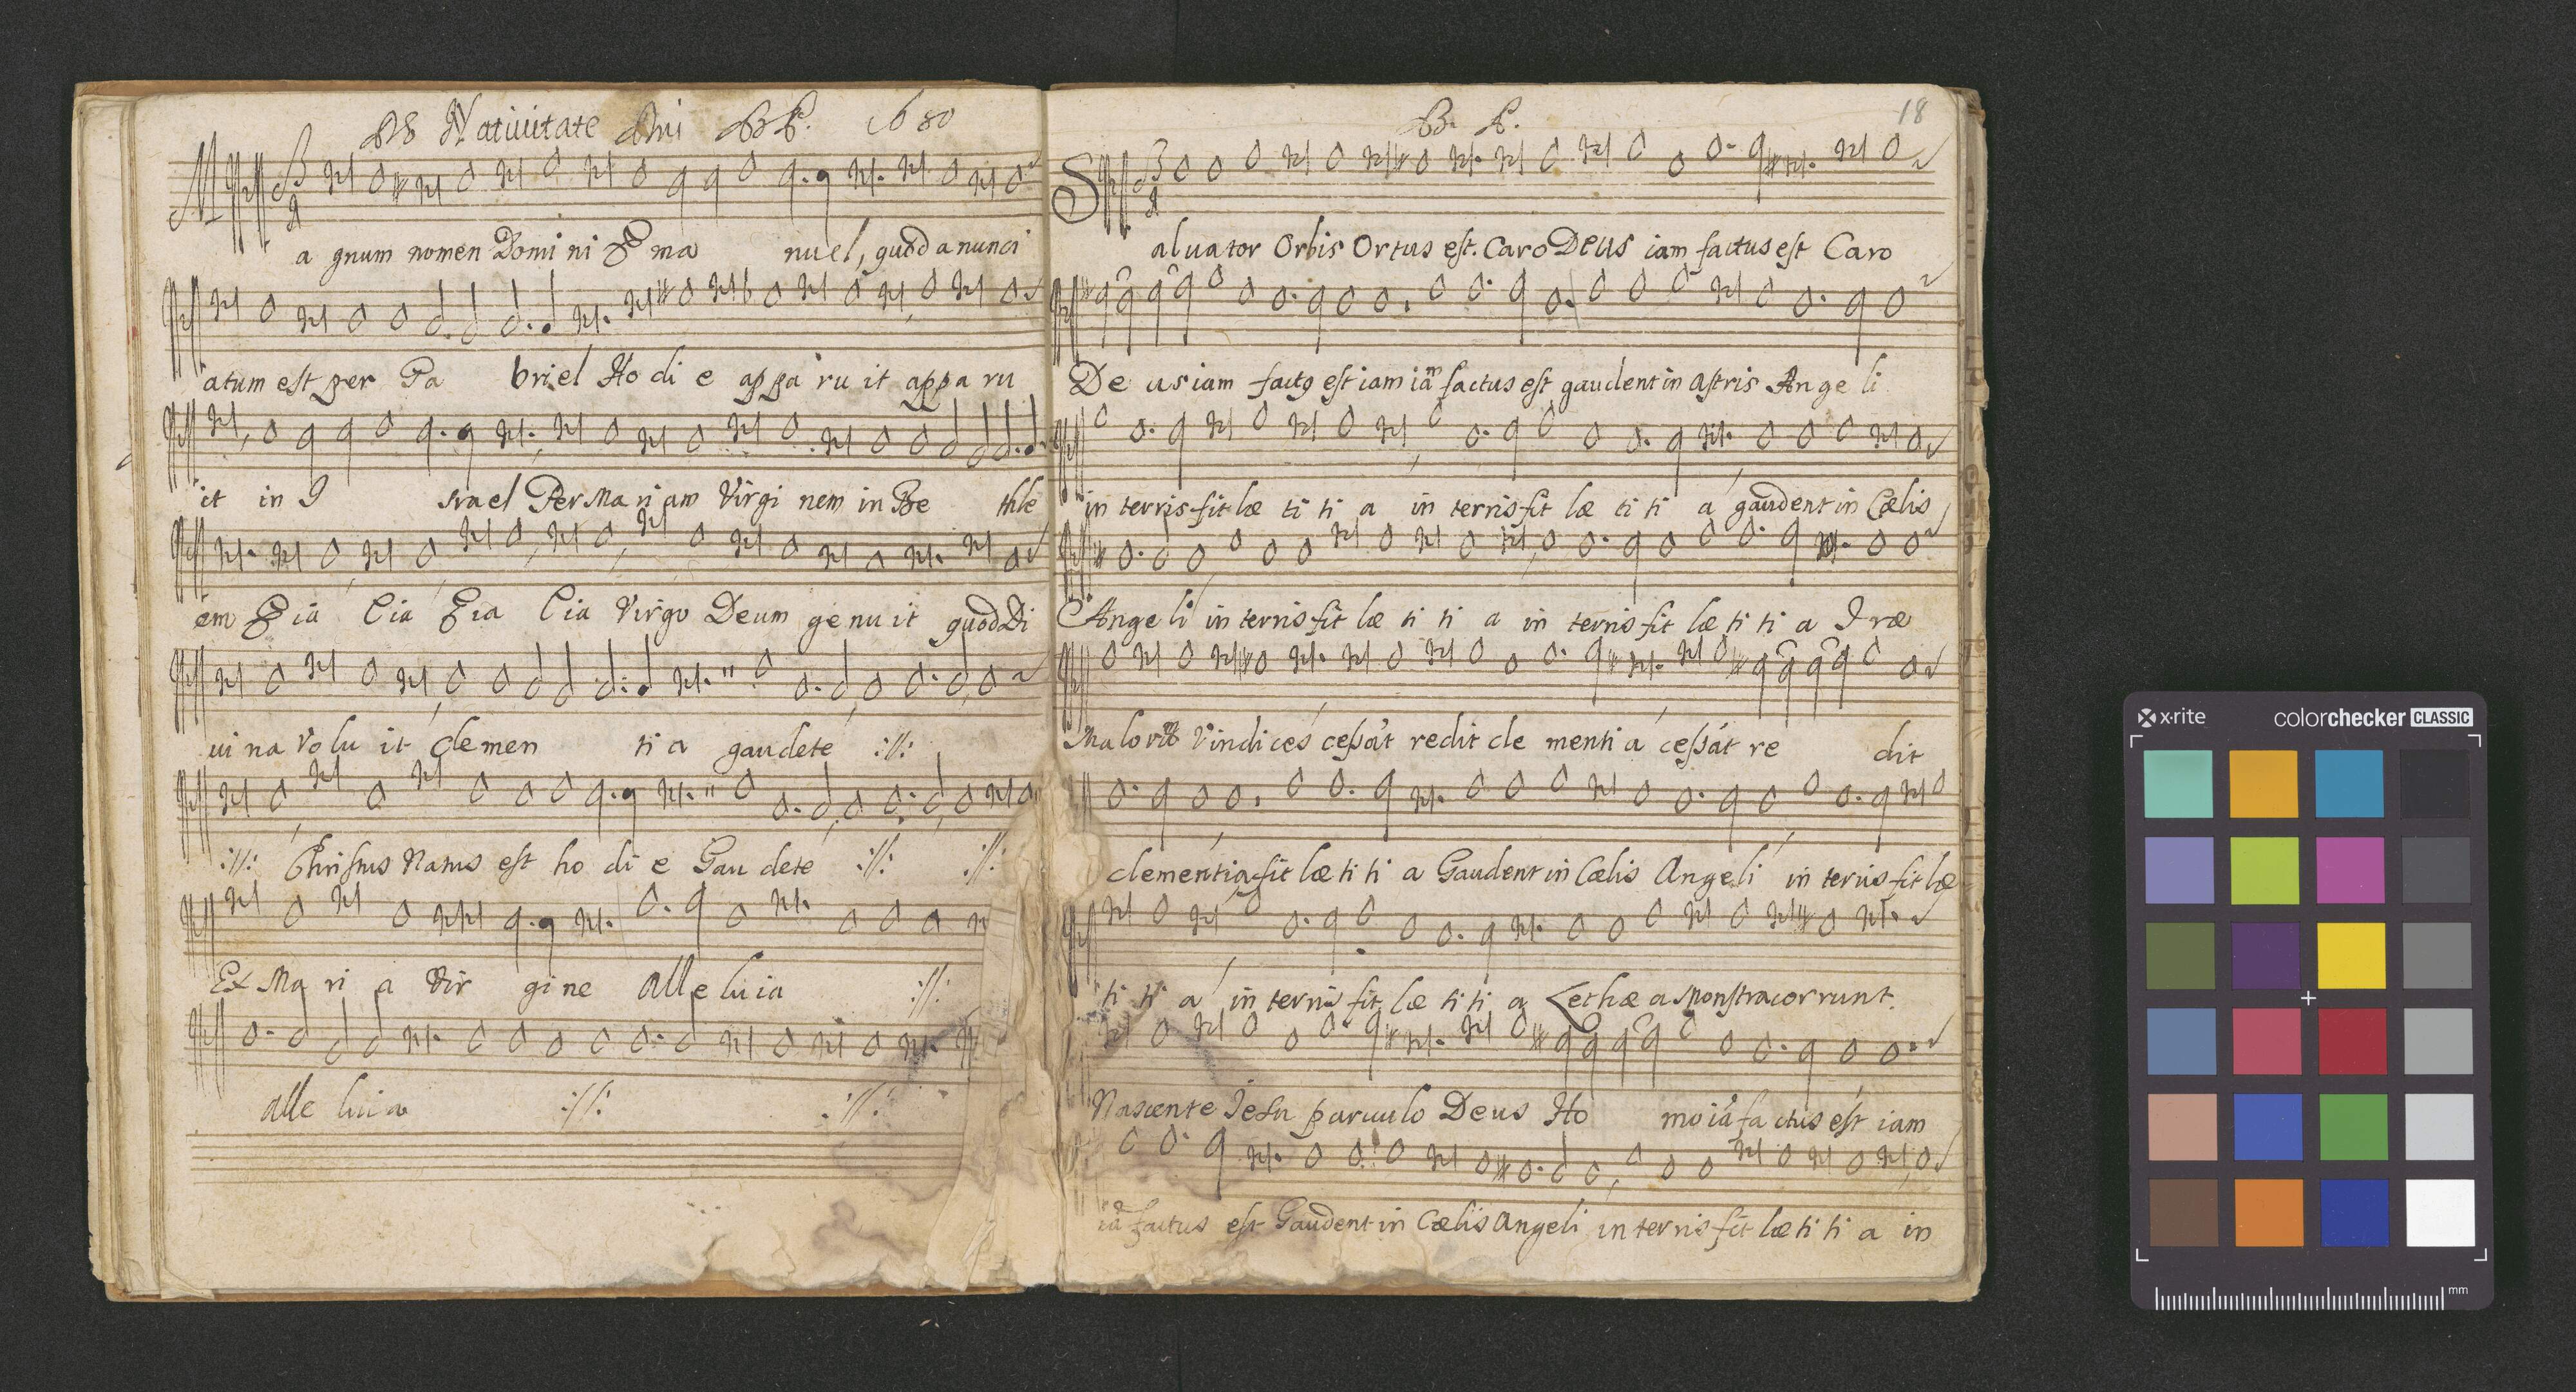 De Natiuitate Dni B. P. 1680
M
a gnum nomen Domi ni E ma nuel, quod a nunci
atum est per Ga briel Ho di e appa ru it appa ru
it in I srael Per Ma ri am Virgi nem in Be thle
em Eia Eia Eia Eia Virgo Deum ge nu it quod Di
ui na Vo lu it clemen ti a gaudete :||:
:||: Christus Natus est ho di e Gau dete :||: :||:
Ex Ma ri a Vir gi ne alle luia :||:
alle luia :||: :||:
B. P.
18
S
aluator Orbis Ortus est. Caro Deus iam factus est Caro
De us iam factus est iam iam factus est gaudent in astris Ange li
in terris fit læ ti ti a in terris fit læ ti ti a gaudent in Cælis
Ange li in terris fit læ ti ti a in terris fit læ ti ti a Iræ
Malorum Vindices cessat redit cle menti a cessat re dit
clementia fit læ ti ti a Gaudent in Cælis Angeli in terris fit læ
ti ti a in terris fit læ ti ti a Lethæa Monstra corrunt
Nascente Iesu paruulo Deus Ho mo iã factus est iam
iã factus est Gaudent in Cælis Angeli in terris fit læ ti ti a in
x·rite
colorchecker CLASSIC
mm